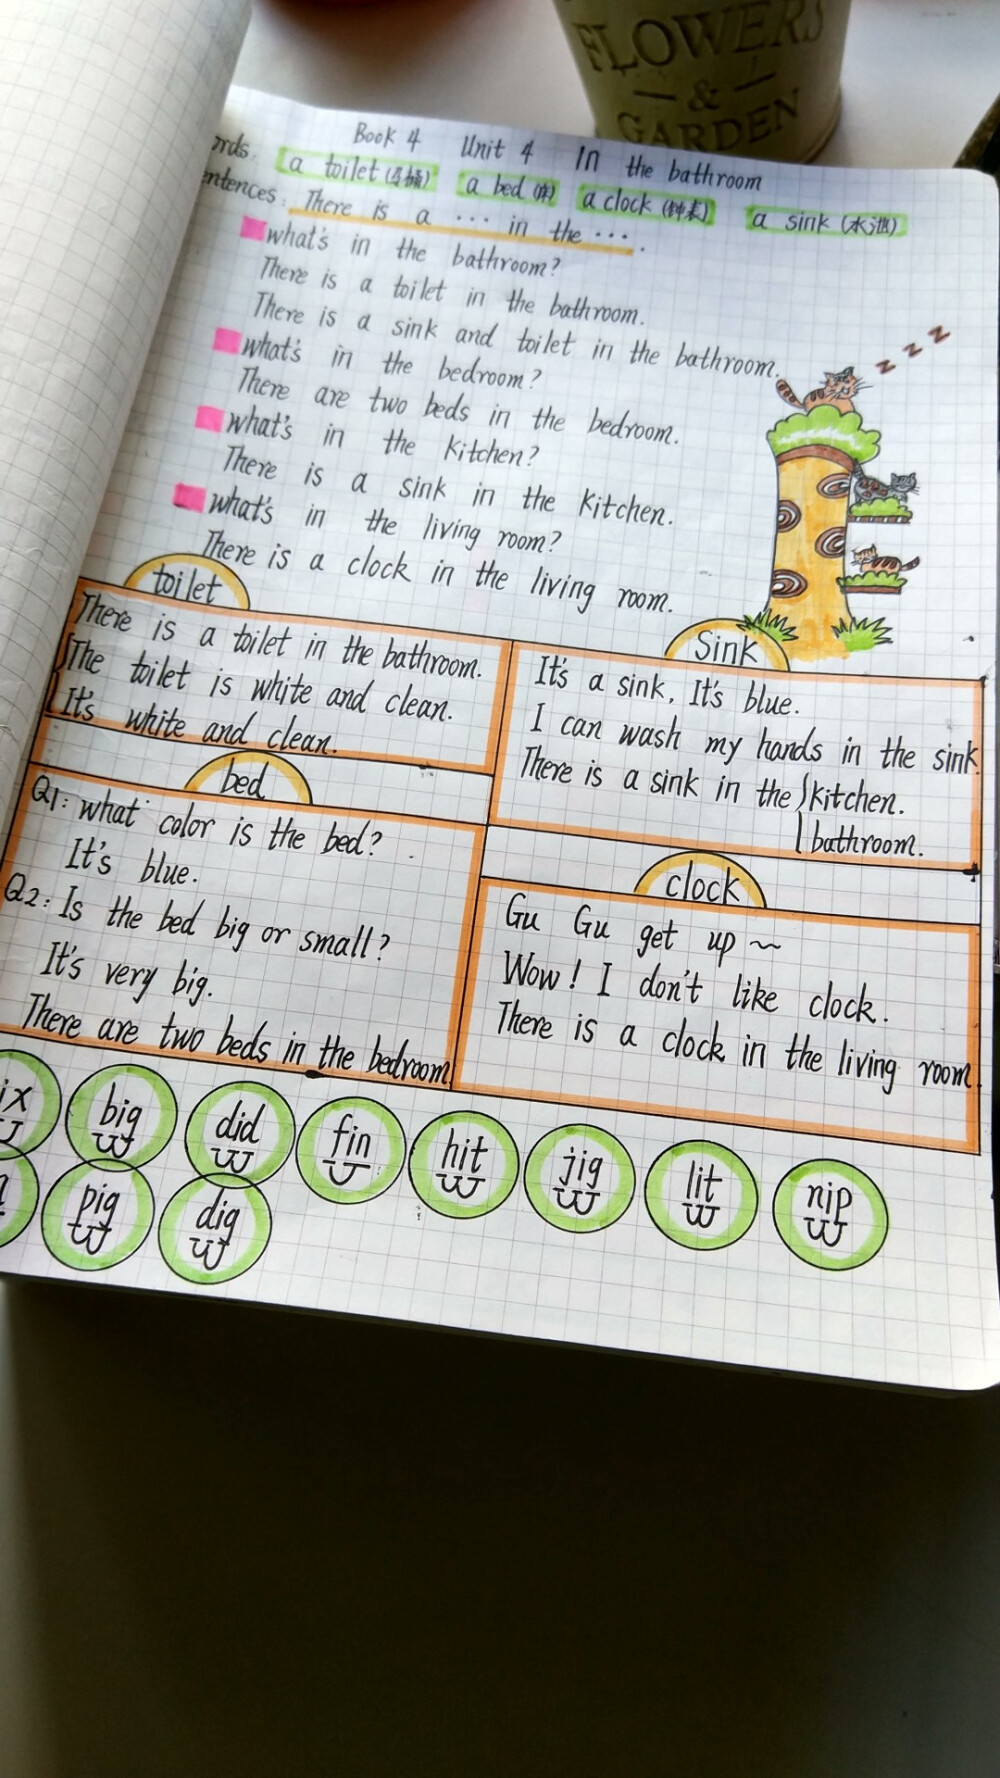 FLOWERS
&
GARDEN
Book 4 Unit 4 In the bathroom
rds. a toilet (马桶) a bed (床) a clock (钟表) a sink (水池)
entences: There is a ... in the ... .
what's in the bathroom?
There is a toilet in the bathroom.
There is a sink and toilet in the bathroom.
what's in the bedroom?
There are two beds in the bedroom.
what's in the kitchen?
There is a sink in the kitchen.
what's in the living room?
There is a clock in the living room.
z z z
toilet
There is a toilet in the bathroom.
The toilet is white and clean.
It's white and clean.
Sink
It's a sink, It's blue.
I can wash my hands in the sink.
There is a sink in the kitchen.
bathroom.
bed
Q1: what color is the bed?
It's blue.
Q2: Is the bed big or small?
It's very big.
There are two beds in the bedroom
clock
Gu Gu get up ~
Wow! I don't like clock.
There is a clock in the living room.
ix big did fin hit jig lit nip
pig dig